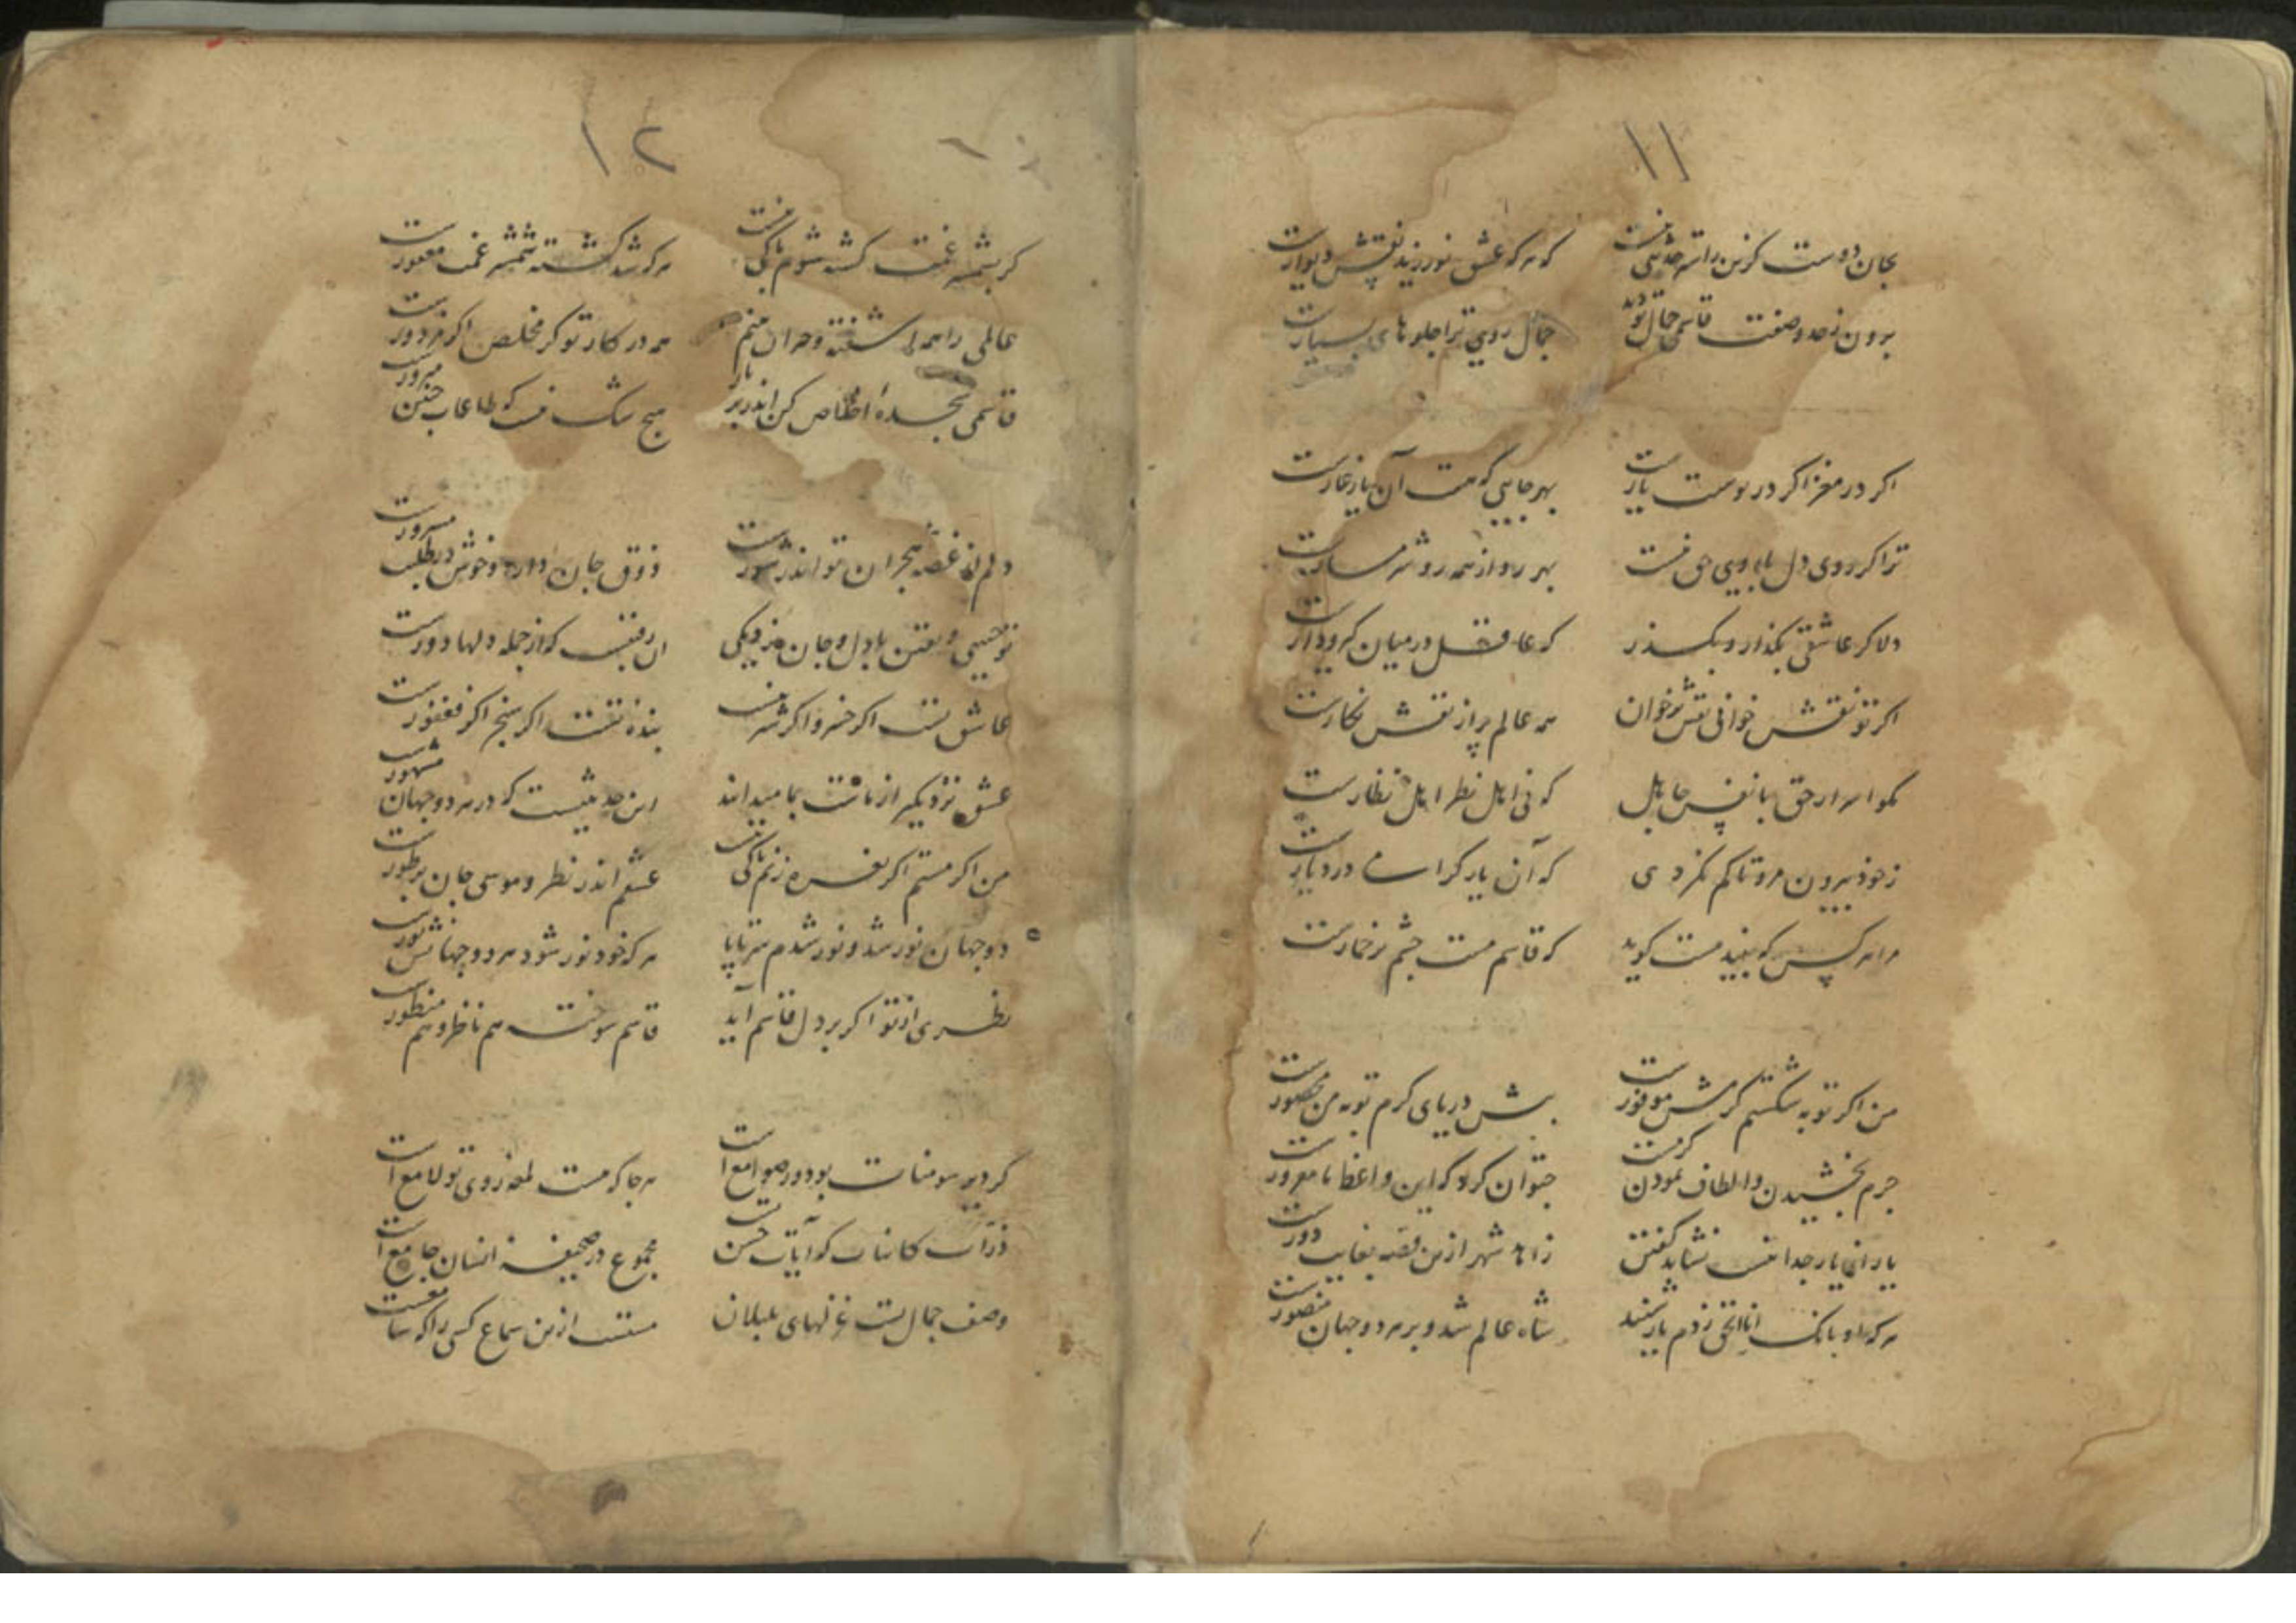 ۱۱
بجان دوست کزین راستر حدیثی نیست
که هر که عشق نورزید نقش دیوارست
برون ز حد و صفت قاسمی جمال تو دید
جمال روی ترا جلوهای بسیارست
اکر در مغز اکر در پوست یارست
بهر جایی که هست آن یار غارست
ترا کر روی دل با روی حق نیست
بهر رو از همه رو شرمسارست
دلا کر عاشقی بکذار و بکذر
که عاقل در میان کیر و دارست
اکر تو نقش خوانی نقش برخوان
همه عالم پر از نقش نکارست
مکو اسرار حق با نفس جاهل
که نی اهل نظر اهل نظارست
ز خود بیرون مرو تا کم نکردی
که آن یار کرامی در دیارست
مرا هر کس که بیند مست کوید
که قاسم مست چشم پر خمارست
من اکر توبه شکستم کرمش موفورست
پیش دریای کرم توبه من محصورست
جرم بخشیدن و الطاف نمودن کرمست
چتوان کرد که این واعظ ما مغرورست
یار از یار جدا نیست نشاید کفتن
زاهد شهر ازین قصه بغایت دورست
هر که او بانک انا الحق ز دم یار شنید
شاه عالم شد و بر هر دو جهان منصورست
۱۲
کر بشمشیر غمت کشته شوم باکی نیست
هر که شد کشته شمشیر غمت مغفورست
عالمی را همه آشفته و حیران بینم
همه در کار تو کر مخلص اکر مزدورست
قاسمی سجدهٔ اخلاص کن اندر بر یار
هیچ شک نیست که طاعات چنین مبرورست
دلم از غصه هجران تو اندر شورست
ذوق جان دارد و خوش در طلبت مسرورست
تو حبیبی و یقین با دل و جان نزدیکی
آن رقیبست که از جمله دلها دورست
عاشق تست اکر خسرو اکر شیرینست
بنده تست اکر سنجر اکر فغفورست
عشق نزدیکتر از ماست بما میدانند
این حدیثیست که در هر دو جهان مشهورست
من اکر مستم اکر نعره زنم باکی نیست
عشقم اندر نظر و موسی جان بر طورست
دو جهان نور شد و نور شدم سر تا پا
هر که خود نور شود هر دو جهانش نورست
نظری از تو اکر بر دل قاسم آید
قاسم سوخته هم ناظر و هم منظورست
کر دیر سومنات بود ور صوامع است
هر جا که هست لمعه روی تو لامع است
ذرات کاینات که آیات حسن تست
مجموع در صحیفه انسان جامع است
وصف جمال تست غزلهای بلبلان
مستست ازین سماع کسی را که سامعست